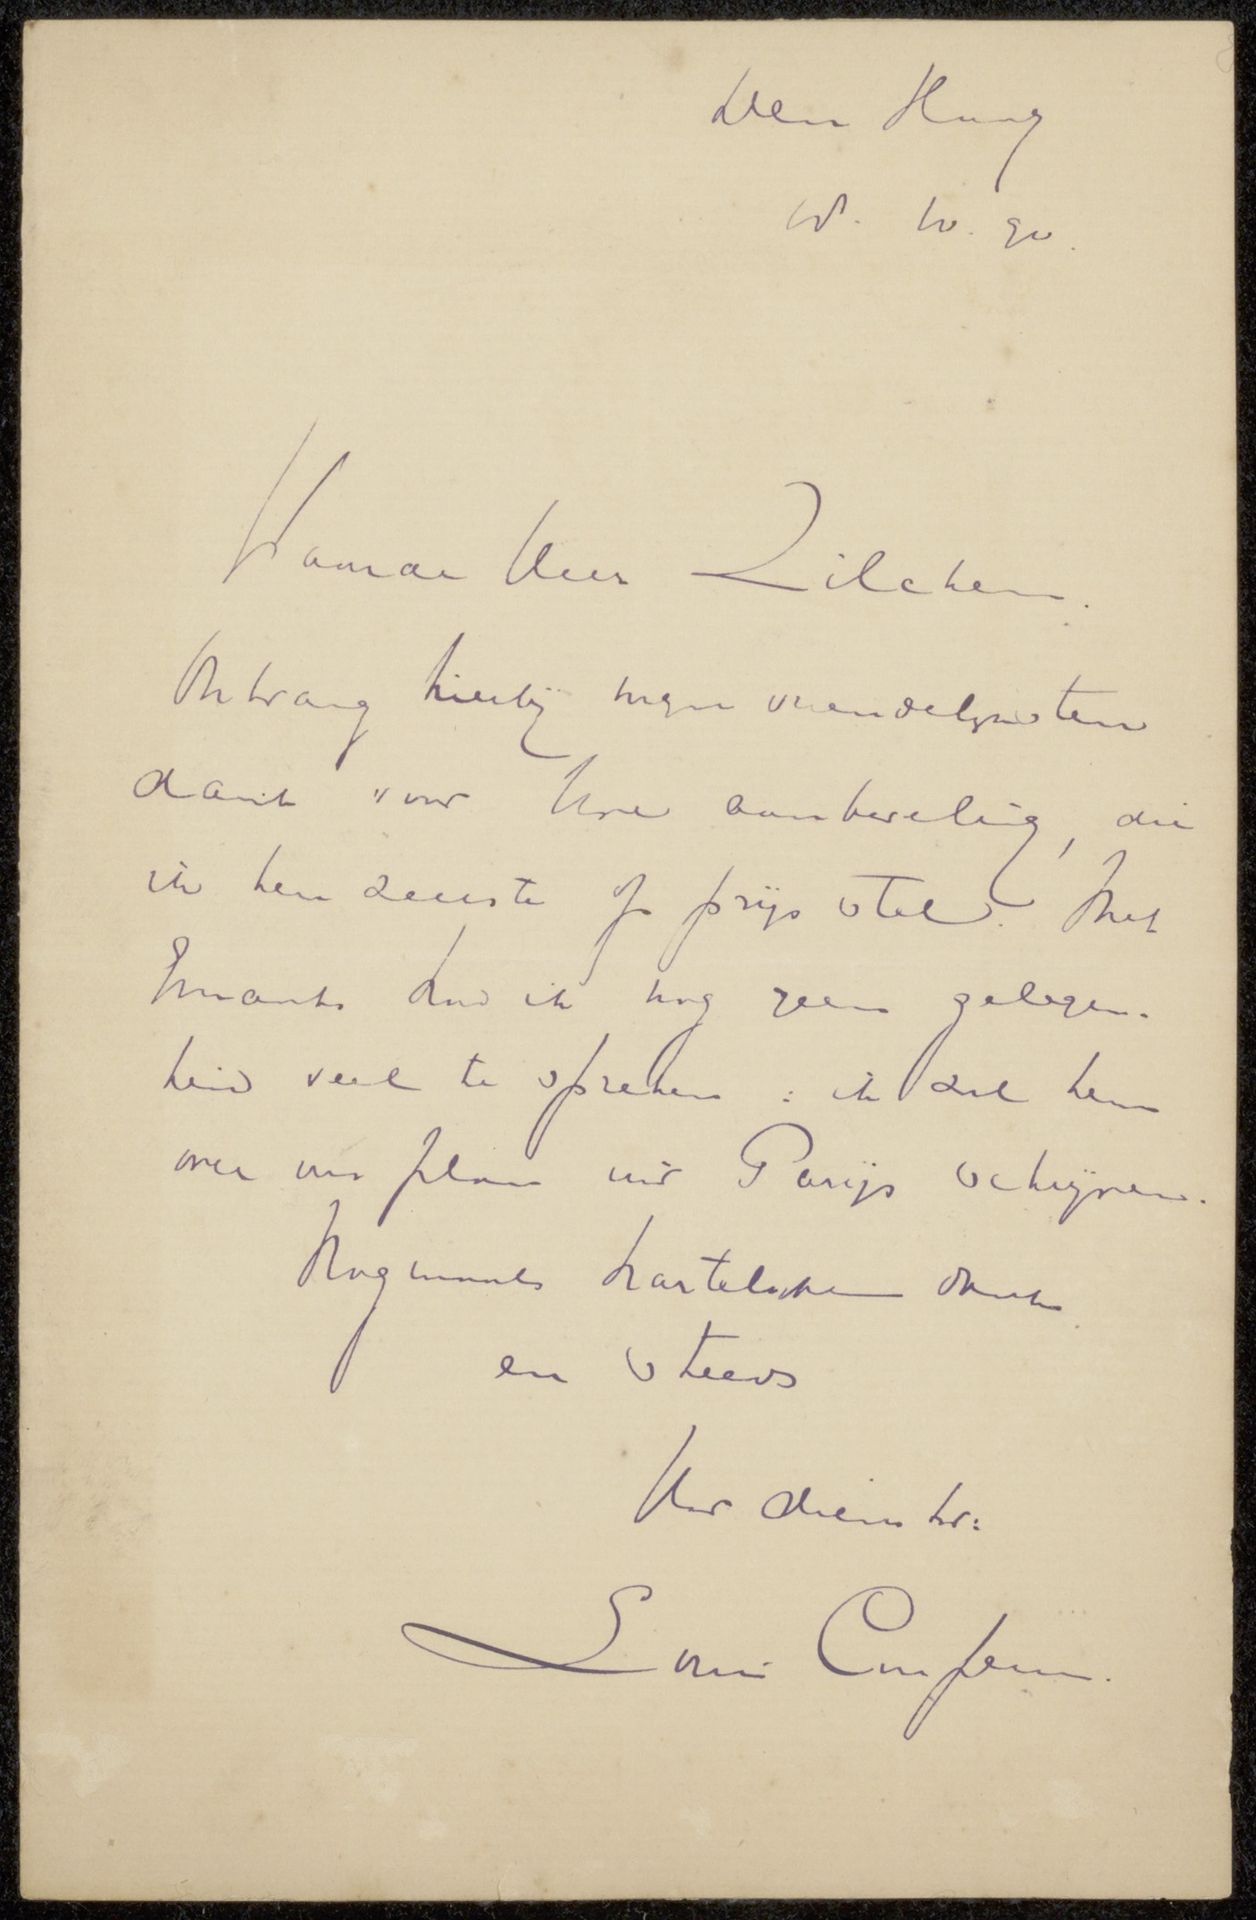 Den Haag
10. 90.
Waarde Heer Zilcken.
Ontvang hierbij mijn vriendelijksten
dank voor Uwe aanbeveling, die
ik ten zeerste op prijs stel. Met
Emants had ik nog geen gelegen-
heid veel te spreken: ik zal hem
over ons plan uit Parijs schrijven.
Nogmaals hartelijken dank
en steeds
Uw dienstv:
Louis Couperus.